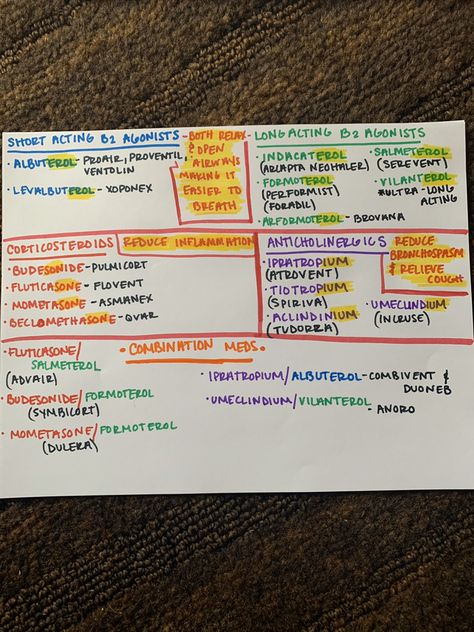 SHORT ACTING B2 AGONISTS
• ALBUTEROL - PROAIR, PROVENTIL,
VENTOLIN
• LEVALBUTEROL - XOPONEX
- BOTH RELAX -
& OPEN
AIRWAYS
MAKING IT
EASIER TO
BREATH
LONG ACTING B2 AGONISTS
• INDACATEROL
(ARCAPTA NEOHALER)
• FORMOTEROL
(PERFORMIST)
(FORADIL)
• ARFORMOTEROL - BROVANA
• SALMETEROL
(SEREVENT)
• VILANTEROL
*ULTRA-LONG
ACTING
CORTICOSTEROIDS
REDUCE INFLAMMATION
• BUDESONIDE - PULMICORT
• FLUTICASONE - FLOVENT
• MOMETASONE - ASMANEX
• BECLOMETHASONE - QVAR
ANTICHOLINERGICS
REDUCE
BRONCHOSPASM
& RELIEVE
COUGH
• IPRATROPIUM
(ATROVENT)
• TIOTROPIUM
(SPIRIVA)
• ACLINDINIUM
(TUDORRA)
• UMECLINDIUM
(INCRUSE)
• COMBINATION MEDS •
• FLUTICASONE/
SALMETEROL
(ADVAIR)
• BUDESONIDE/FORMOTEROL
(SYMBICORT)
• MOMETASONE/FORMOTEROL
(DULERA)
• IPRATROPIUM/ALBUTEROL - COMBIVENT &
DUONEB
• UMECLINDIUM/VILANTEROL
- ANORO